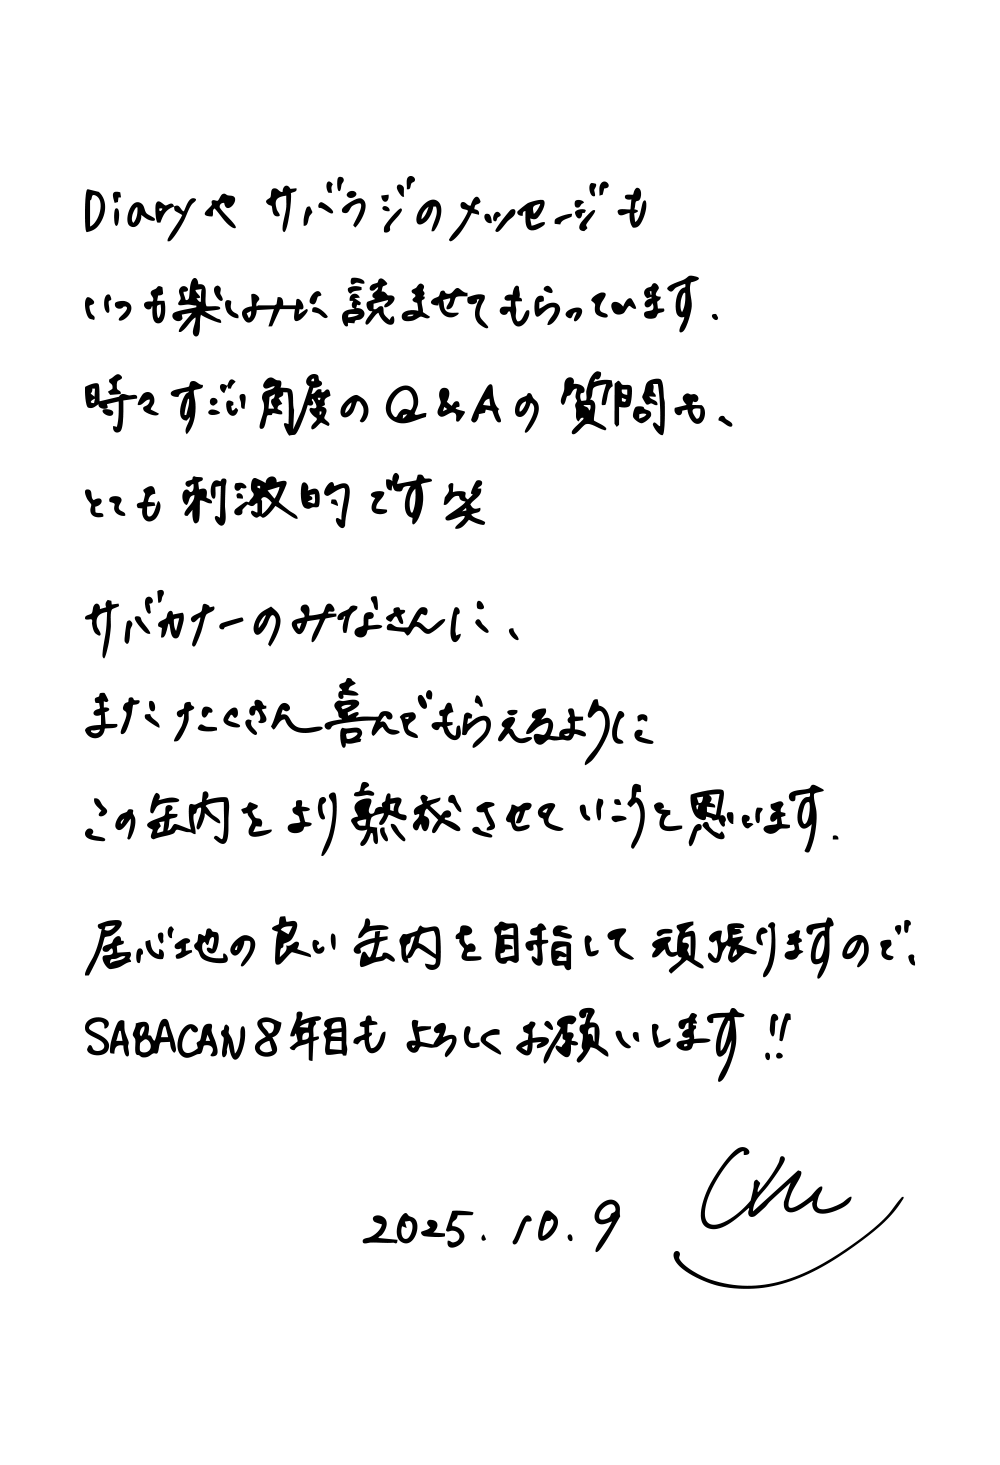 Diaryや サバラジのメッセージも
いつも楽しみに読ませてもらっています.
時々すごい角度のQ&Aの質問も、
とても刺激的です笑
サバカナーのみなさんに、
まだたくさん喜んでもらえるように
この缶内をより熟成させていこうと思います.
居心地の良い缶内を目指して頑張りますので、
SABACAN8年目もよろしくお願いします!!
2025. 10. 9